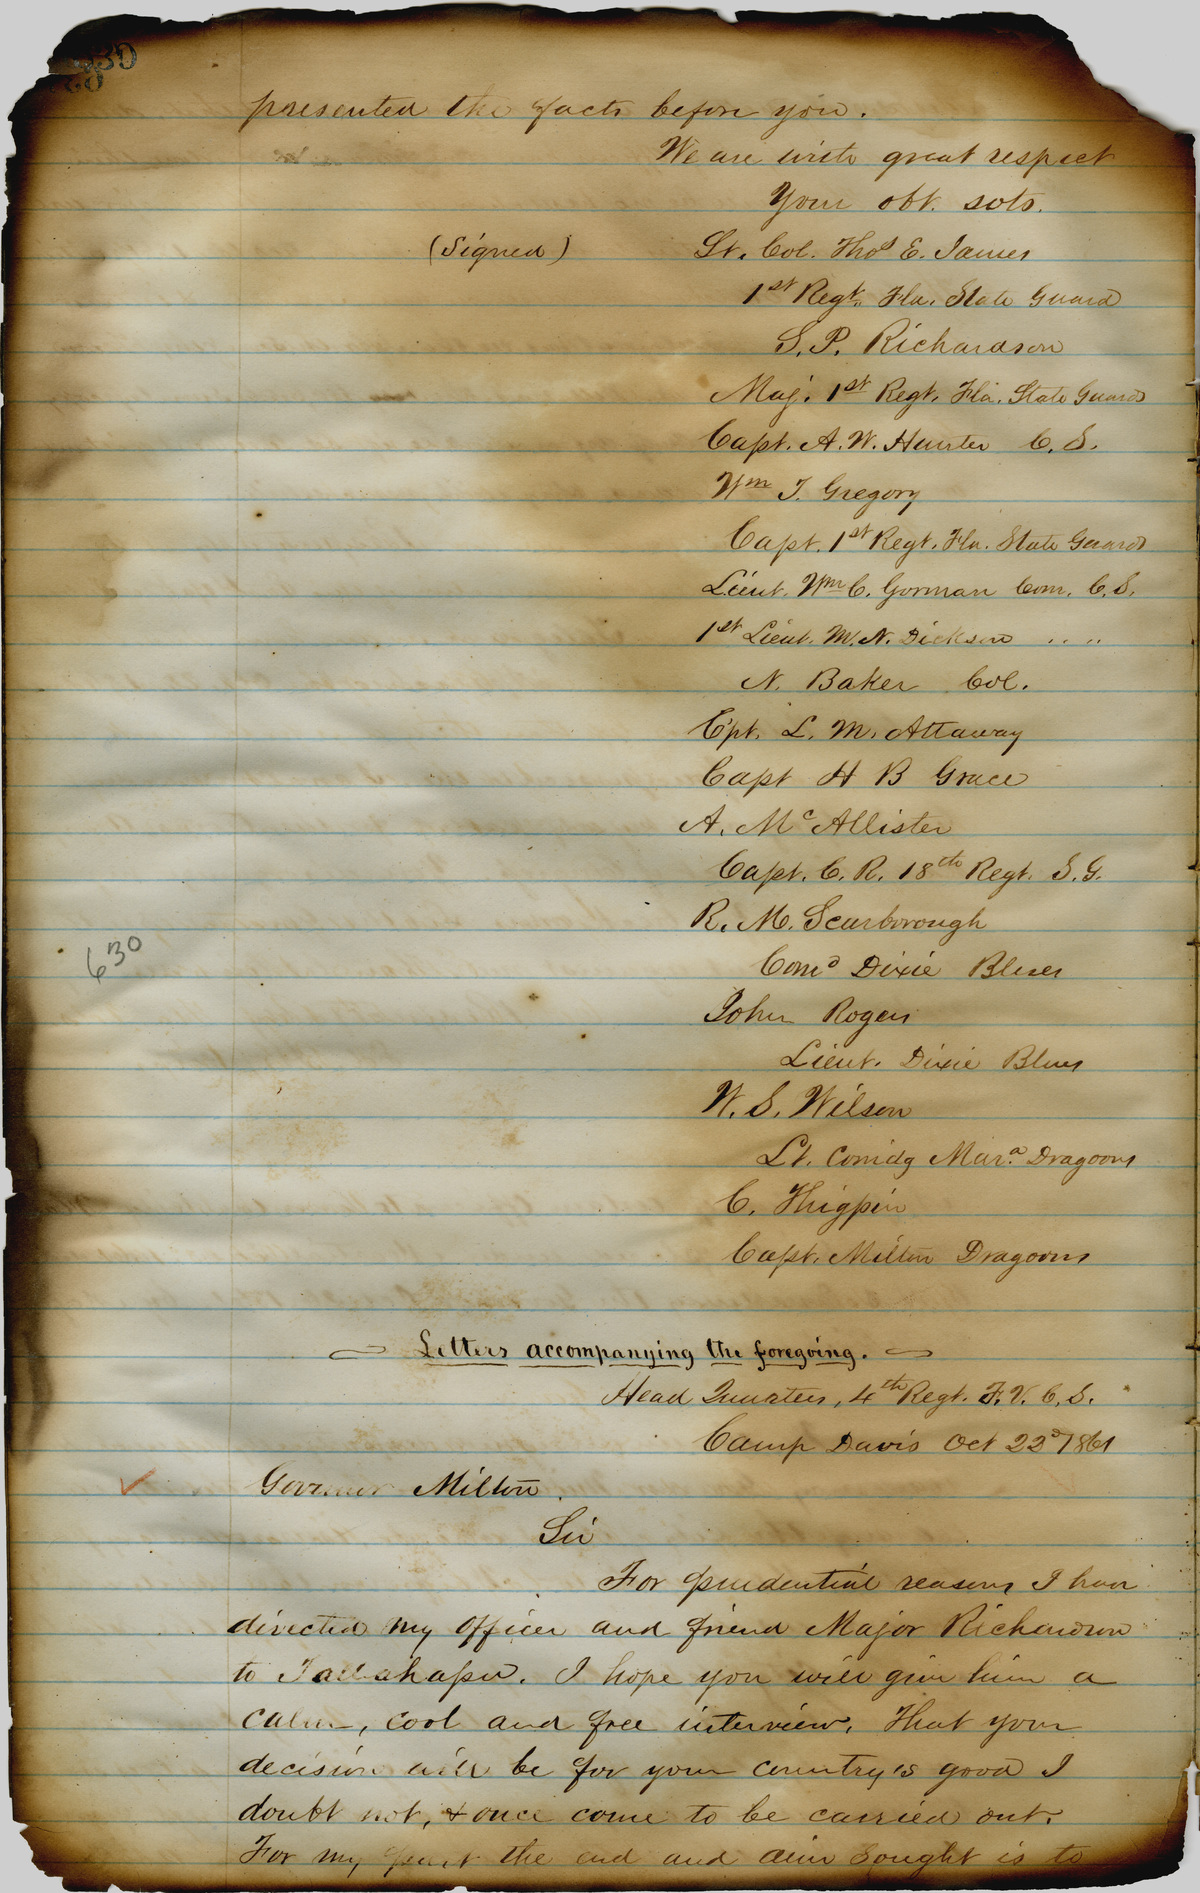 630
presented the facts before you.
We are with great respect
Your obt. svts.
(Signed) Lt. Col. Thos E. James
1st Regt. Fla. State Guard
S. P. Richardson
Maj. 1st Regt. Fla. State Guards
Capt. A. W. Hunter C. S.
Wm T. Gregory
Capt. 1st Regt. Fla. State Guards
Lieut. Wm C. Gorman Com. C. S.
1st Lieut. M. N. Dickson " "
N. Baker Col.
Cpt. L. M. Attaway
Capt H B Grace
A. McAllister
Capt. C. R. 18th Regt. S. G.
R. M. Scarborough
Comd Dixie Blues
630
John Rogers
Lieut. Dixie Blues
W. S. Wilson
Lt. Comdg Mara. Dragoons
C. Thigpin
Capt. Milton Dragoons
Letters accompanying the foregoing.
Head Quarters, 4th Regt. F. V. C. S.
Camp Davis Oct 22d 1861
Governor Milton.
Sir
For prudential reasons I have
directed my officer and friend Major Richardson
to Tallahassee. I hope you will give him a
calm, cool and free interview. That your
decision will be for your country's good I
doubt not, & once come to be carried out.
For my part the end and aim sought is to